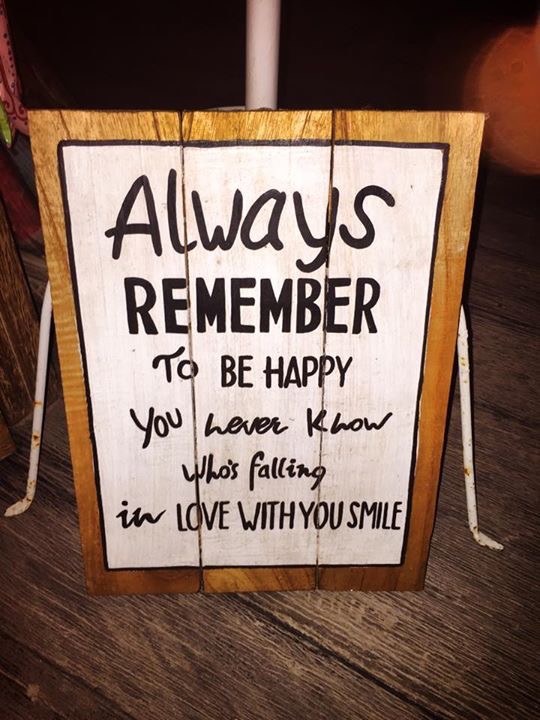 Always
REMEMBER
To BE HAPPY
You never Know
who's falling
in LOVE WITH YOU SMILE